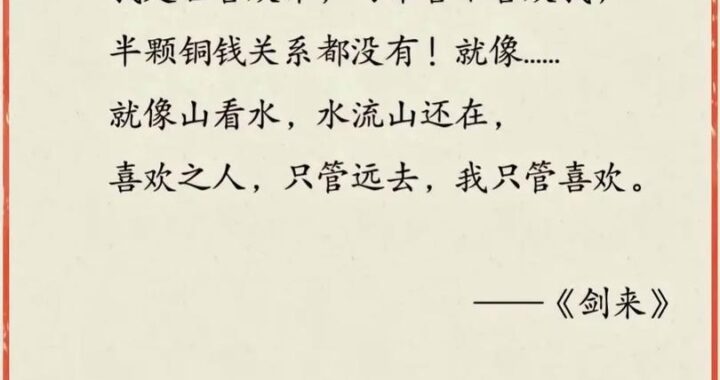 半颗铜钱关系都没有！就像……
就像山看水，水流山还在，
喜欢之人，只管远去，我只管喜欢。
——《剑来》